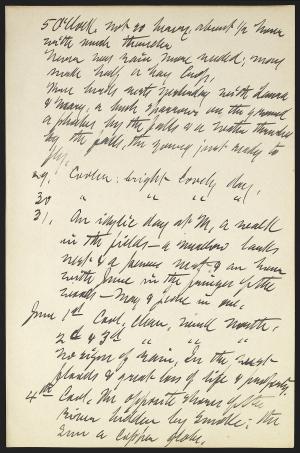 5 O'clock, not so heavy, about 1/2 hour
with much thunder
Never was rain more needed; may
make half a hay crop.
Three birds nests yesterday with
& Mary; a bush sparrow on the ground
a phoebe by the falls & a water thrush
by the falls, the young just ready to
fly.
29. Cooler: bright lovely day.
30 " " " "
31. An idylic day at M, a walk
in the fields — a meadow larks
nest & a nest & an hour
with June in the fringe of the
woods — May & June in one.
June 1st Cool, clear, wind north.
2d & 3d " " "
No sign of rain, In the west
floods & great loss of life & property.
4th Cool, the opposite shore of the
River hidden by smoke; the
sun a copper globe.